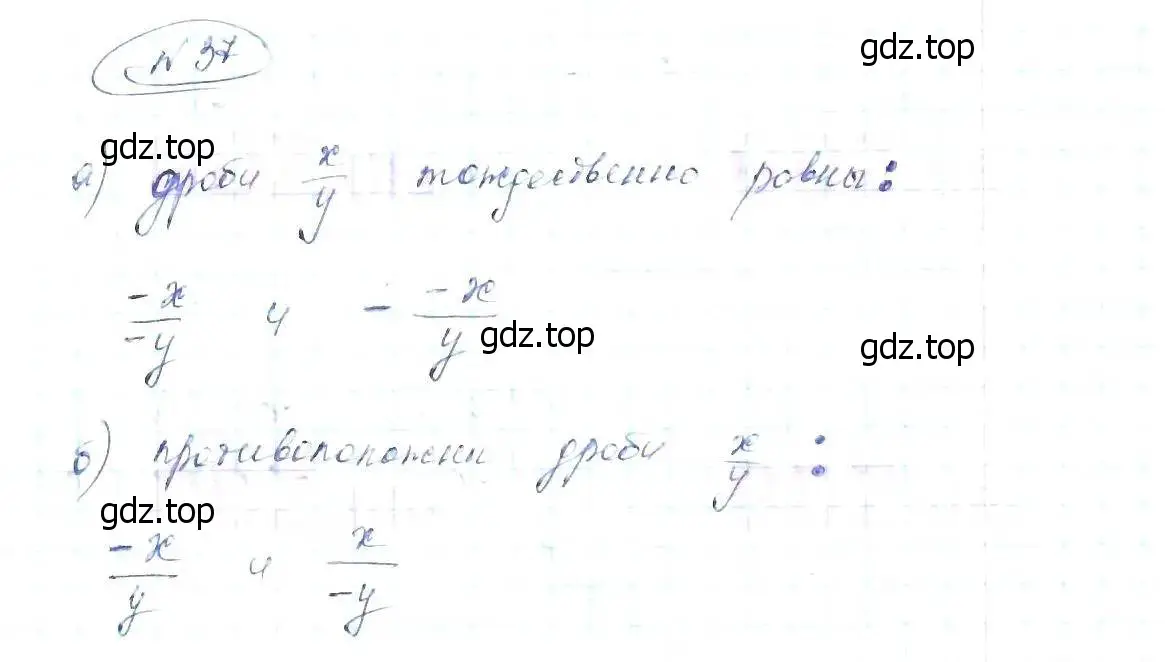 № 37
gdz.top
gdz.top
а) дроби x/y тождественно равны:
-x/-y и - -x/y
gdz.top
gdz.top
б) противоположны дроби x/y :
gdz.top
-x/y и x/-y